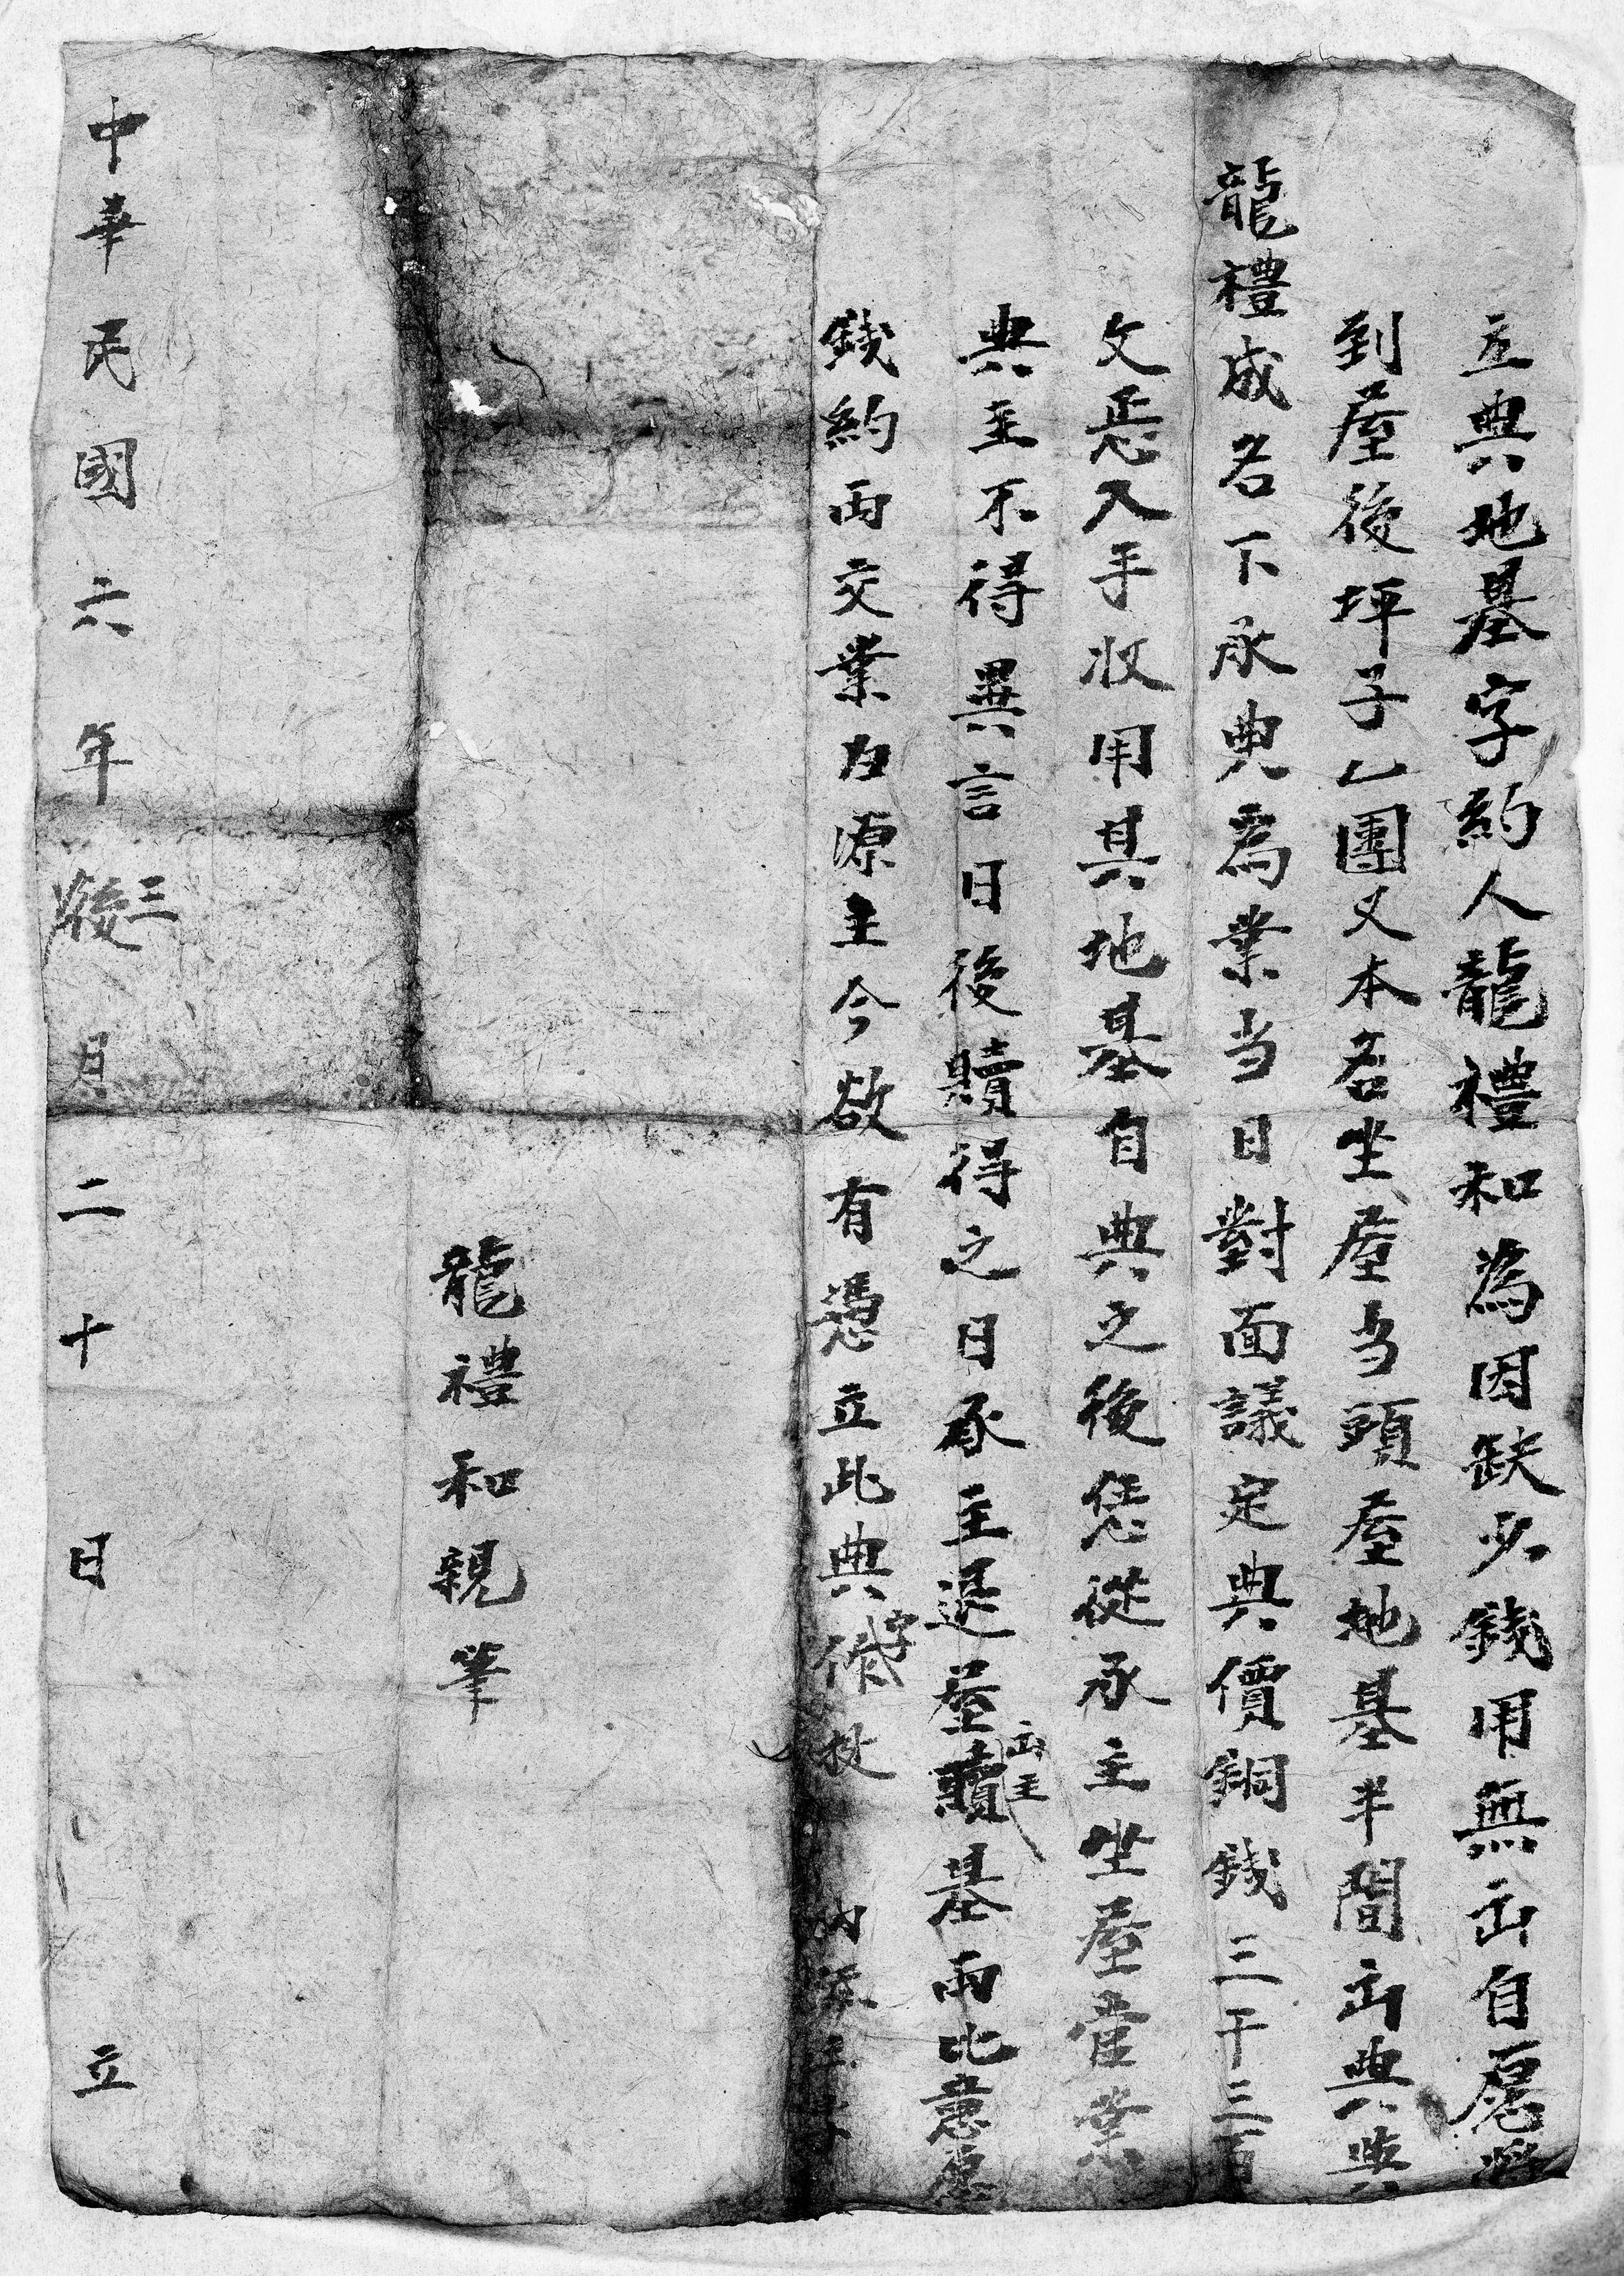 立典地基字約人龍禮和為因缺少錢用無出自愿將
到屋後坪子乙團又本名坐屋当頭屋地基半間出典與
龍禮成名下承典為業当日對面議定典價銅錢三千三百
文恁入手收用其地基自典之後恁從承主坐屋管業
典主不得異言日後贖得之日承主退屋出主贖基兩比意愿
錢約兩交業力源主今欲有憑立此典字作㨿
內添三字
龍禮和親筆
中華民國六年後三月二十日立